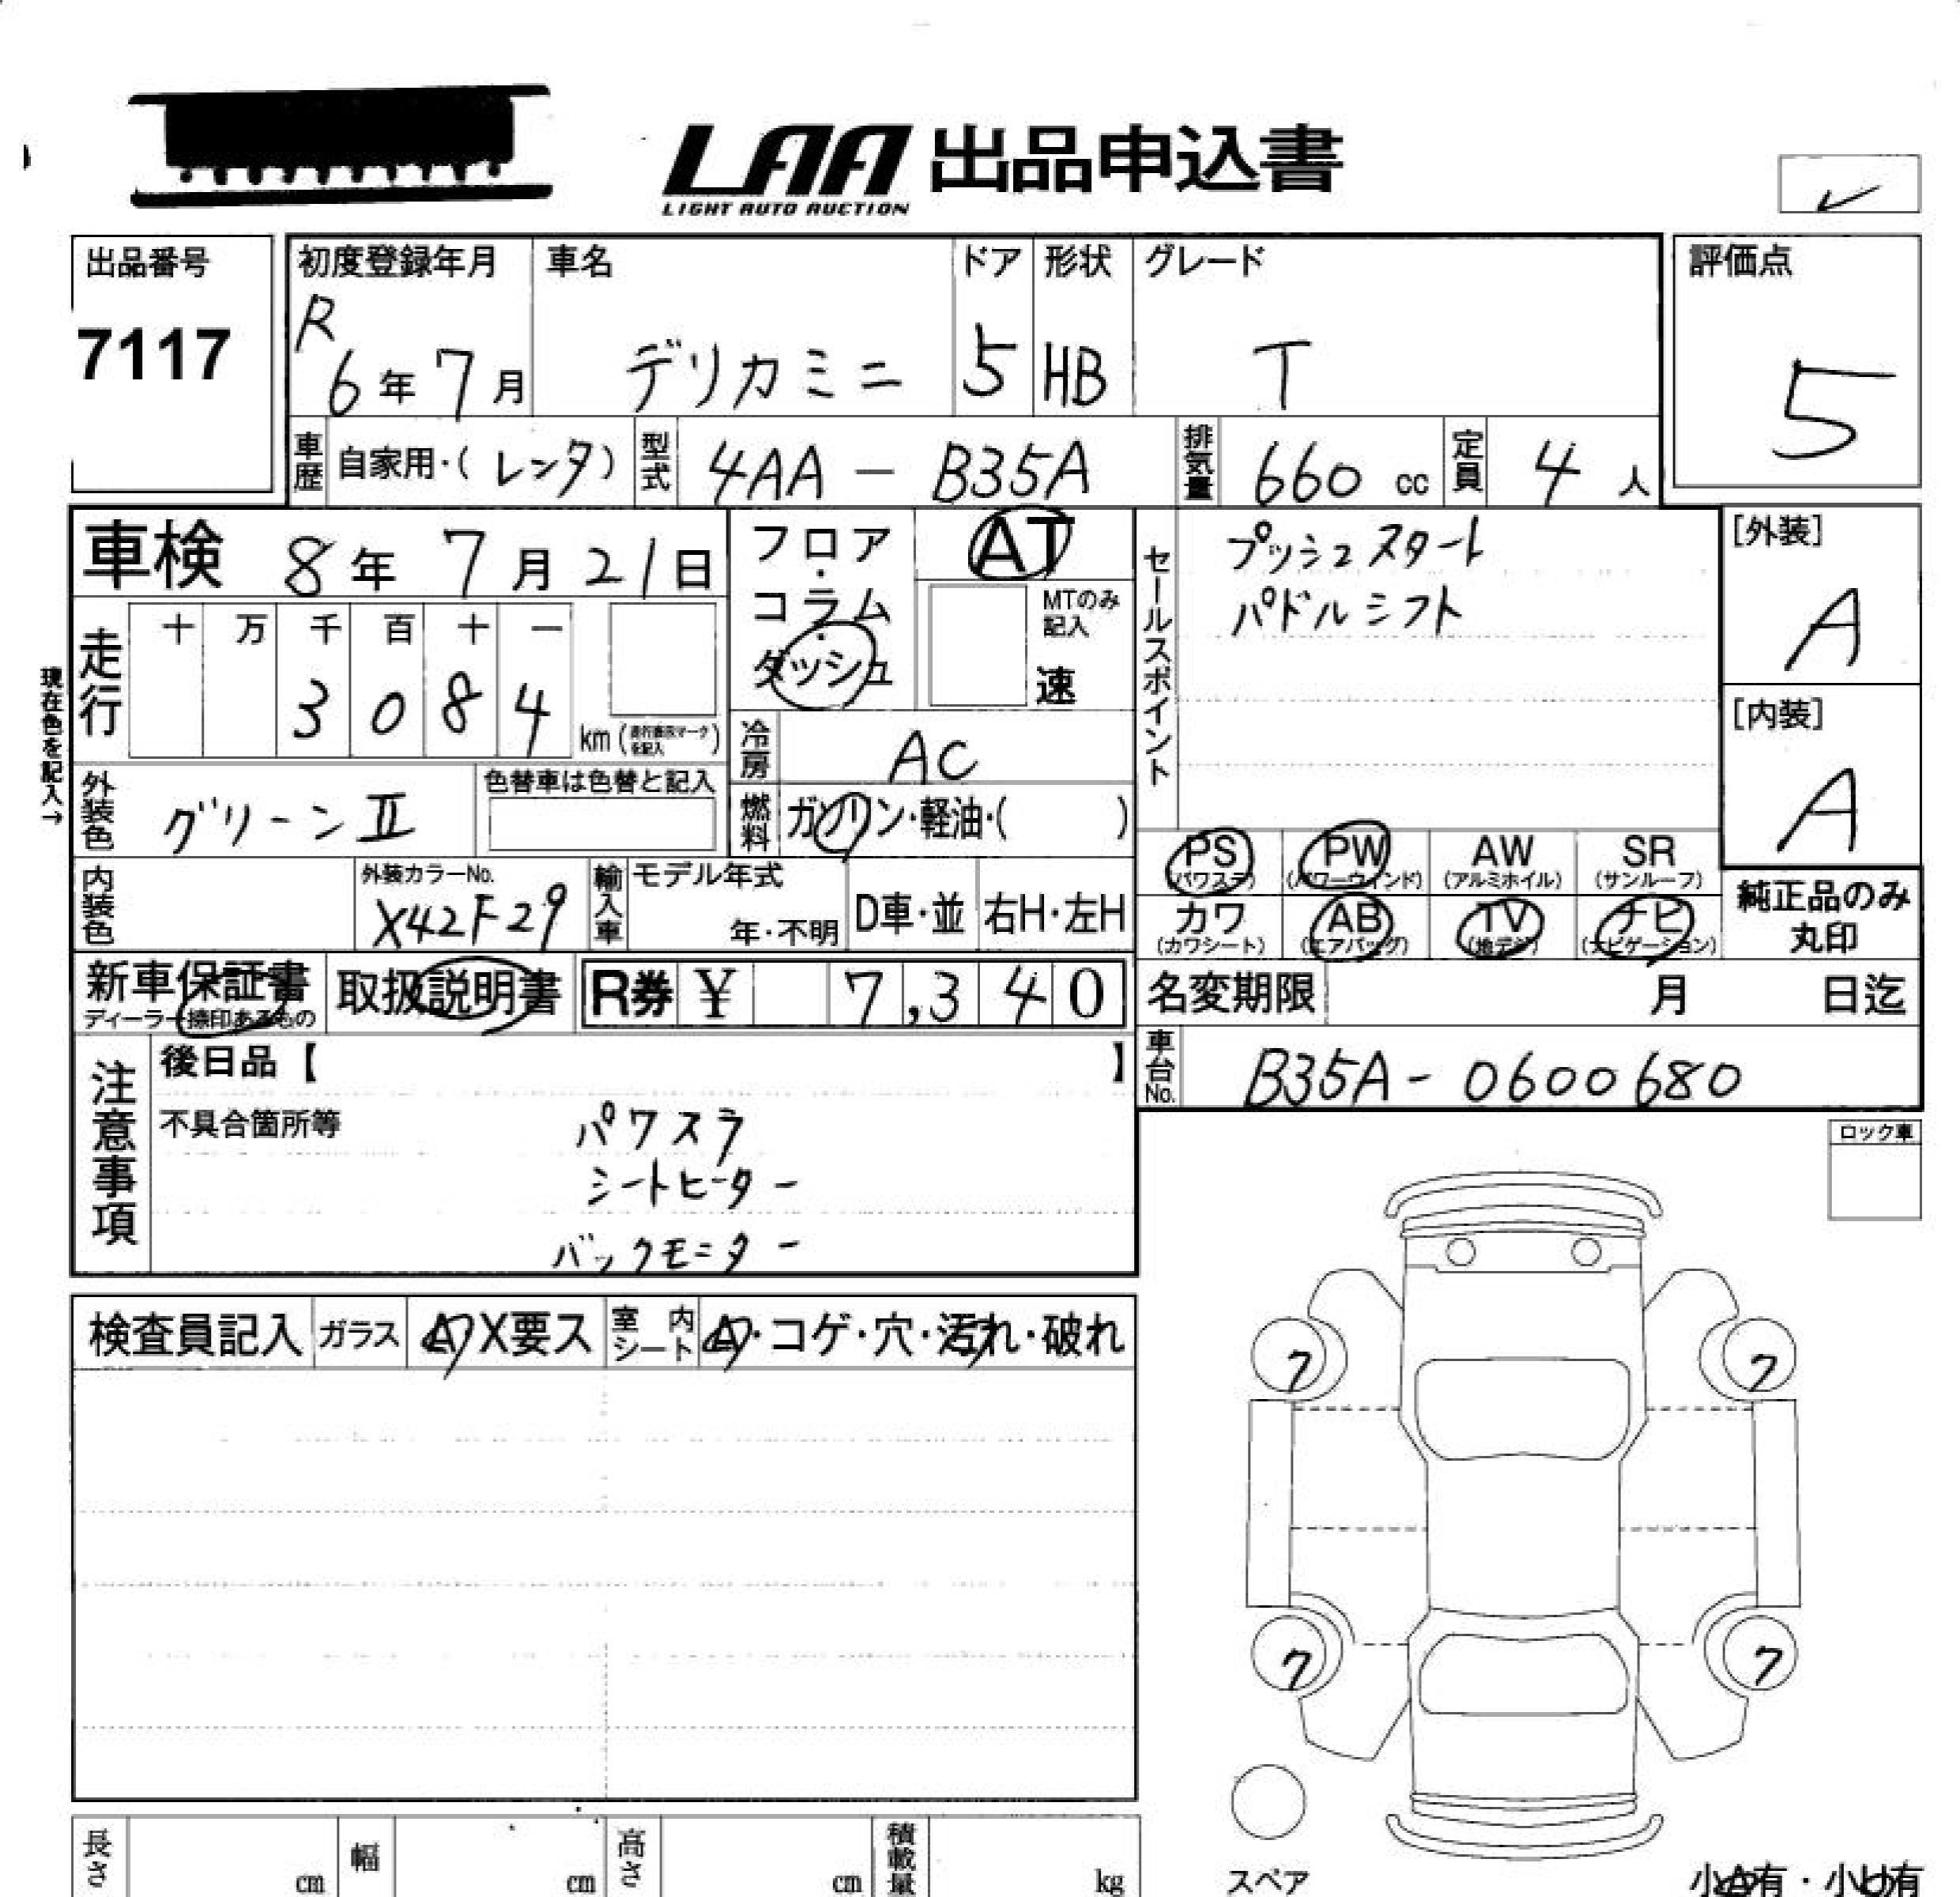 LAA 出品申込書
LIGHT AUTO AUCTION
出品番号
7117
初度登録年月
R
6年 7月
車名
デリカミニ
ドア
5
形状
HB
グレード
T
評価点
5
車歴 自家用・(レンタ)
型式 4AA - B35A
排気量 660 cc
定員 4 人
車検 8年 7月 21日
フロア・コラム・ダッシュ
AT
MTのみ記入
速
セールスポイント
プッシュスタート
パドルシフト
[外装]
A
[内装]
A
現在色を記入→
走行
十 万 千 百 十 一
3 0 8 4
km
冷房 AC
燃料 ガソリン・軽油・( )
外装色 グリーンⅡ
色替車は色替と記入
内装色
外装カラーNo.
X42F29
輸入車
モデル年式
年・不明
D車・並
右H・左H
PS (パワステ)
PW (パワーウィンド)
AW (アルミホイル)
SR (サンルーフ)
カワ (カワシート)
AB (エアバッグ)
TV (地デジ)
ナビ (ナビゲーション)
純正品のみ
丸印
新車保証書
ディーラー捺印あるもの
取扱説明書
R券 ¥ 7,340
名変期限 月 日迄
車台No. B35A - 0600680
注意事項
後日品【 】
不具合箇所等
パワスラ
シートヒーター
バックモニター
ロック車
検査員記入
ガラス A X要ス
室内シート A・コゲ・穴・汚れ・破れ
7
7
7
7
スペア
長さ cm
幅 cm
高さ cm
積載量 kg
小A有・小U有